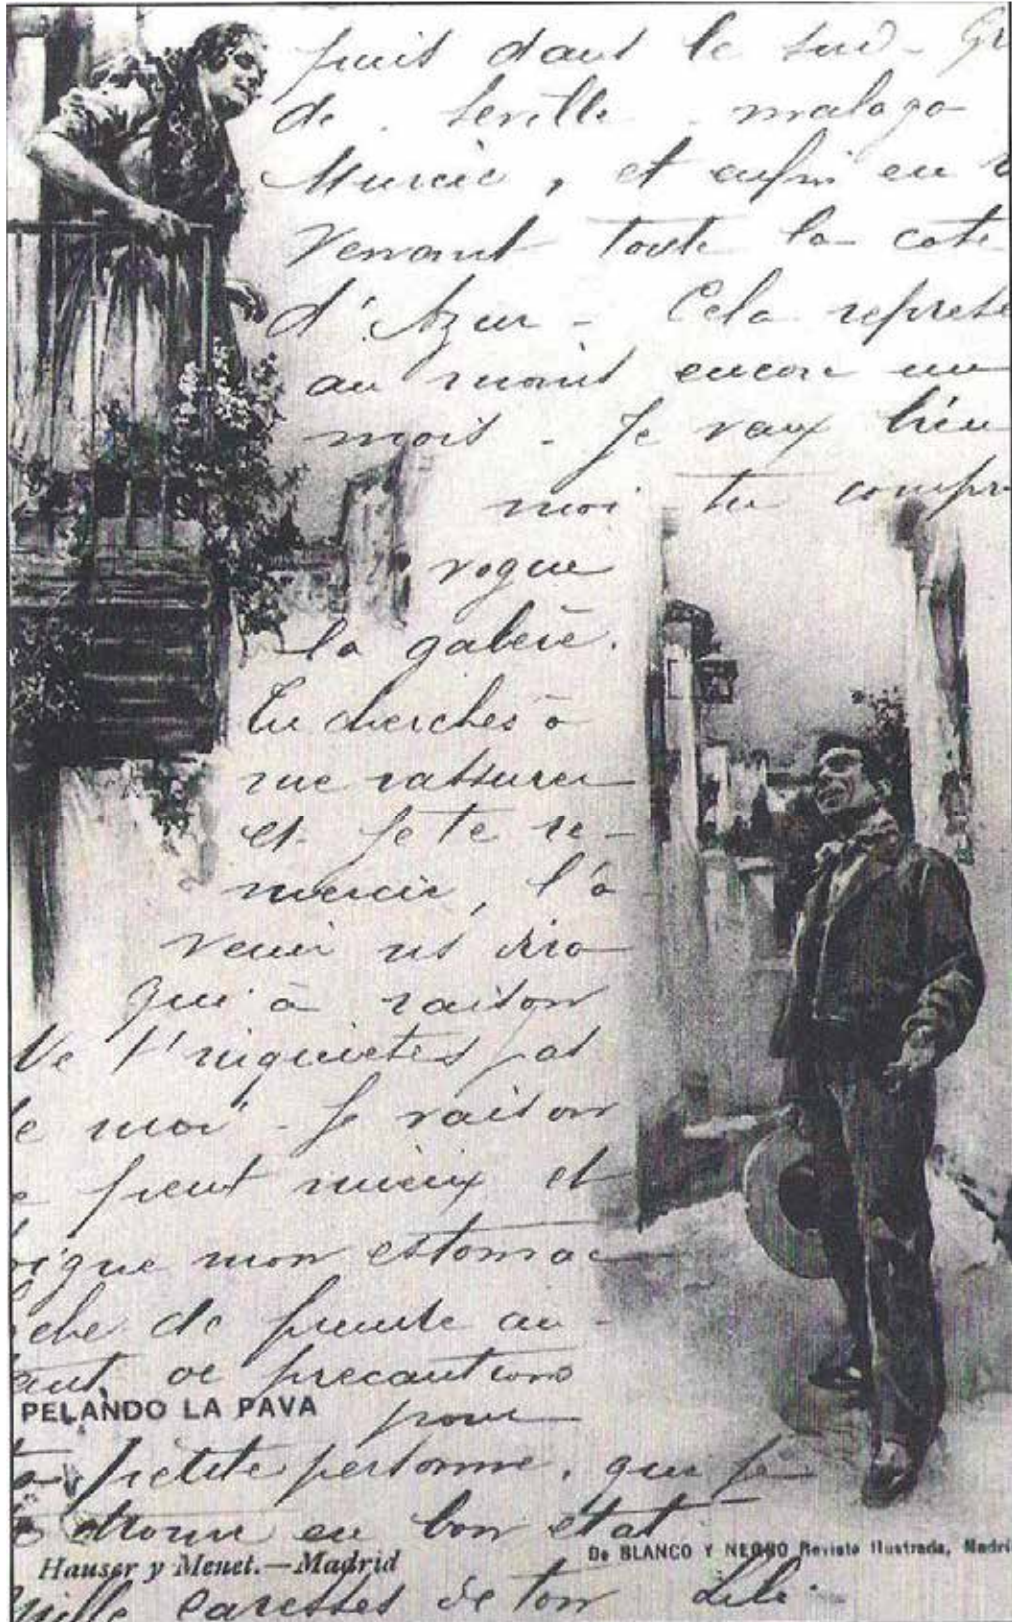 puis dans le sud - Gr
de . Seville . malaga
Murcie, et enfin en r
venant toute la cote
d'Azur - Cela represe
au moins encore un
mois - Je vaux bien
moi tu compr
vogue
la galère.
Tu cherches à
me rassurer
et je te re-
mercie, l'a
venir ns dira
qui à raison
Ne t'inquietes pas
de moi - Je raison
peut mieux et
soigne mon estomac
che de prendre au-
tant de precautions
PELANDO LA PAVA
pour
ta petite personne, que je
trouve en bon état
Hauser y Menet.—Madrid
De BLANCO Y NEGRO Revista Ilustrada, Madri
Mille caresses de ton Lili